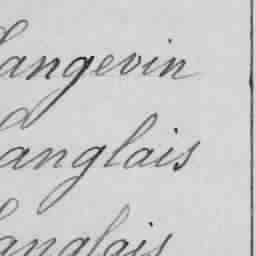 Langevin
Langlais
Langlais